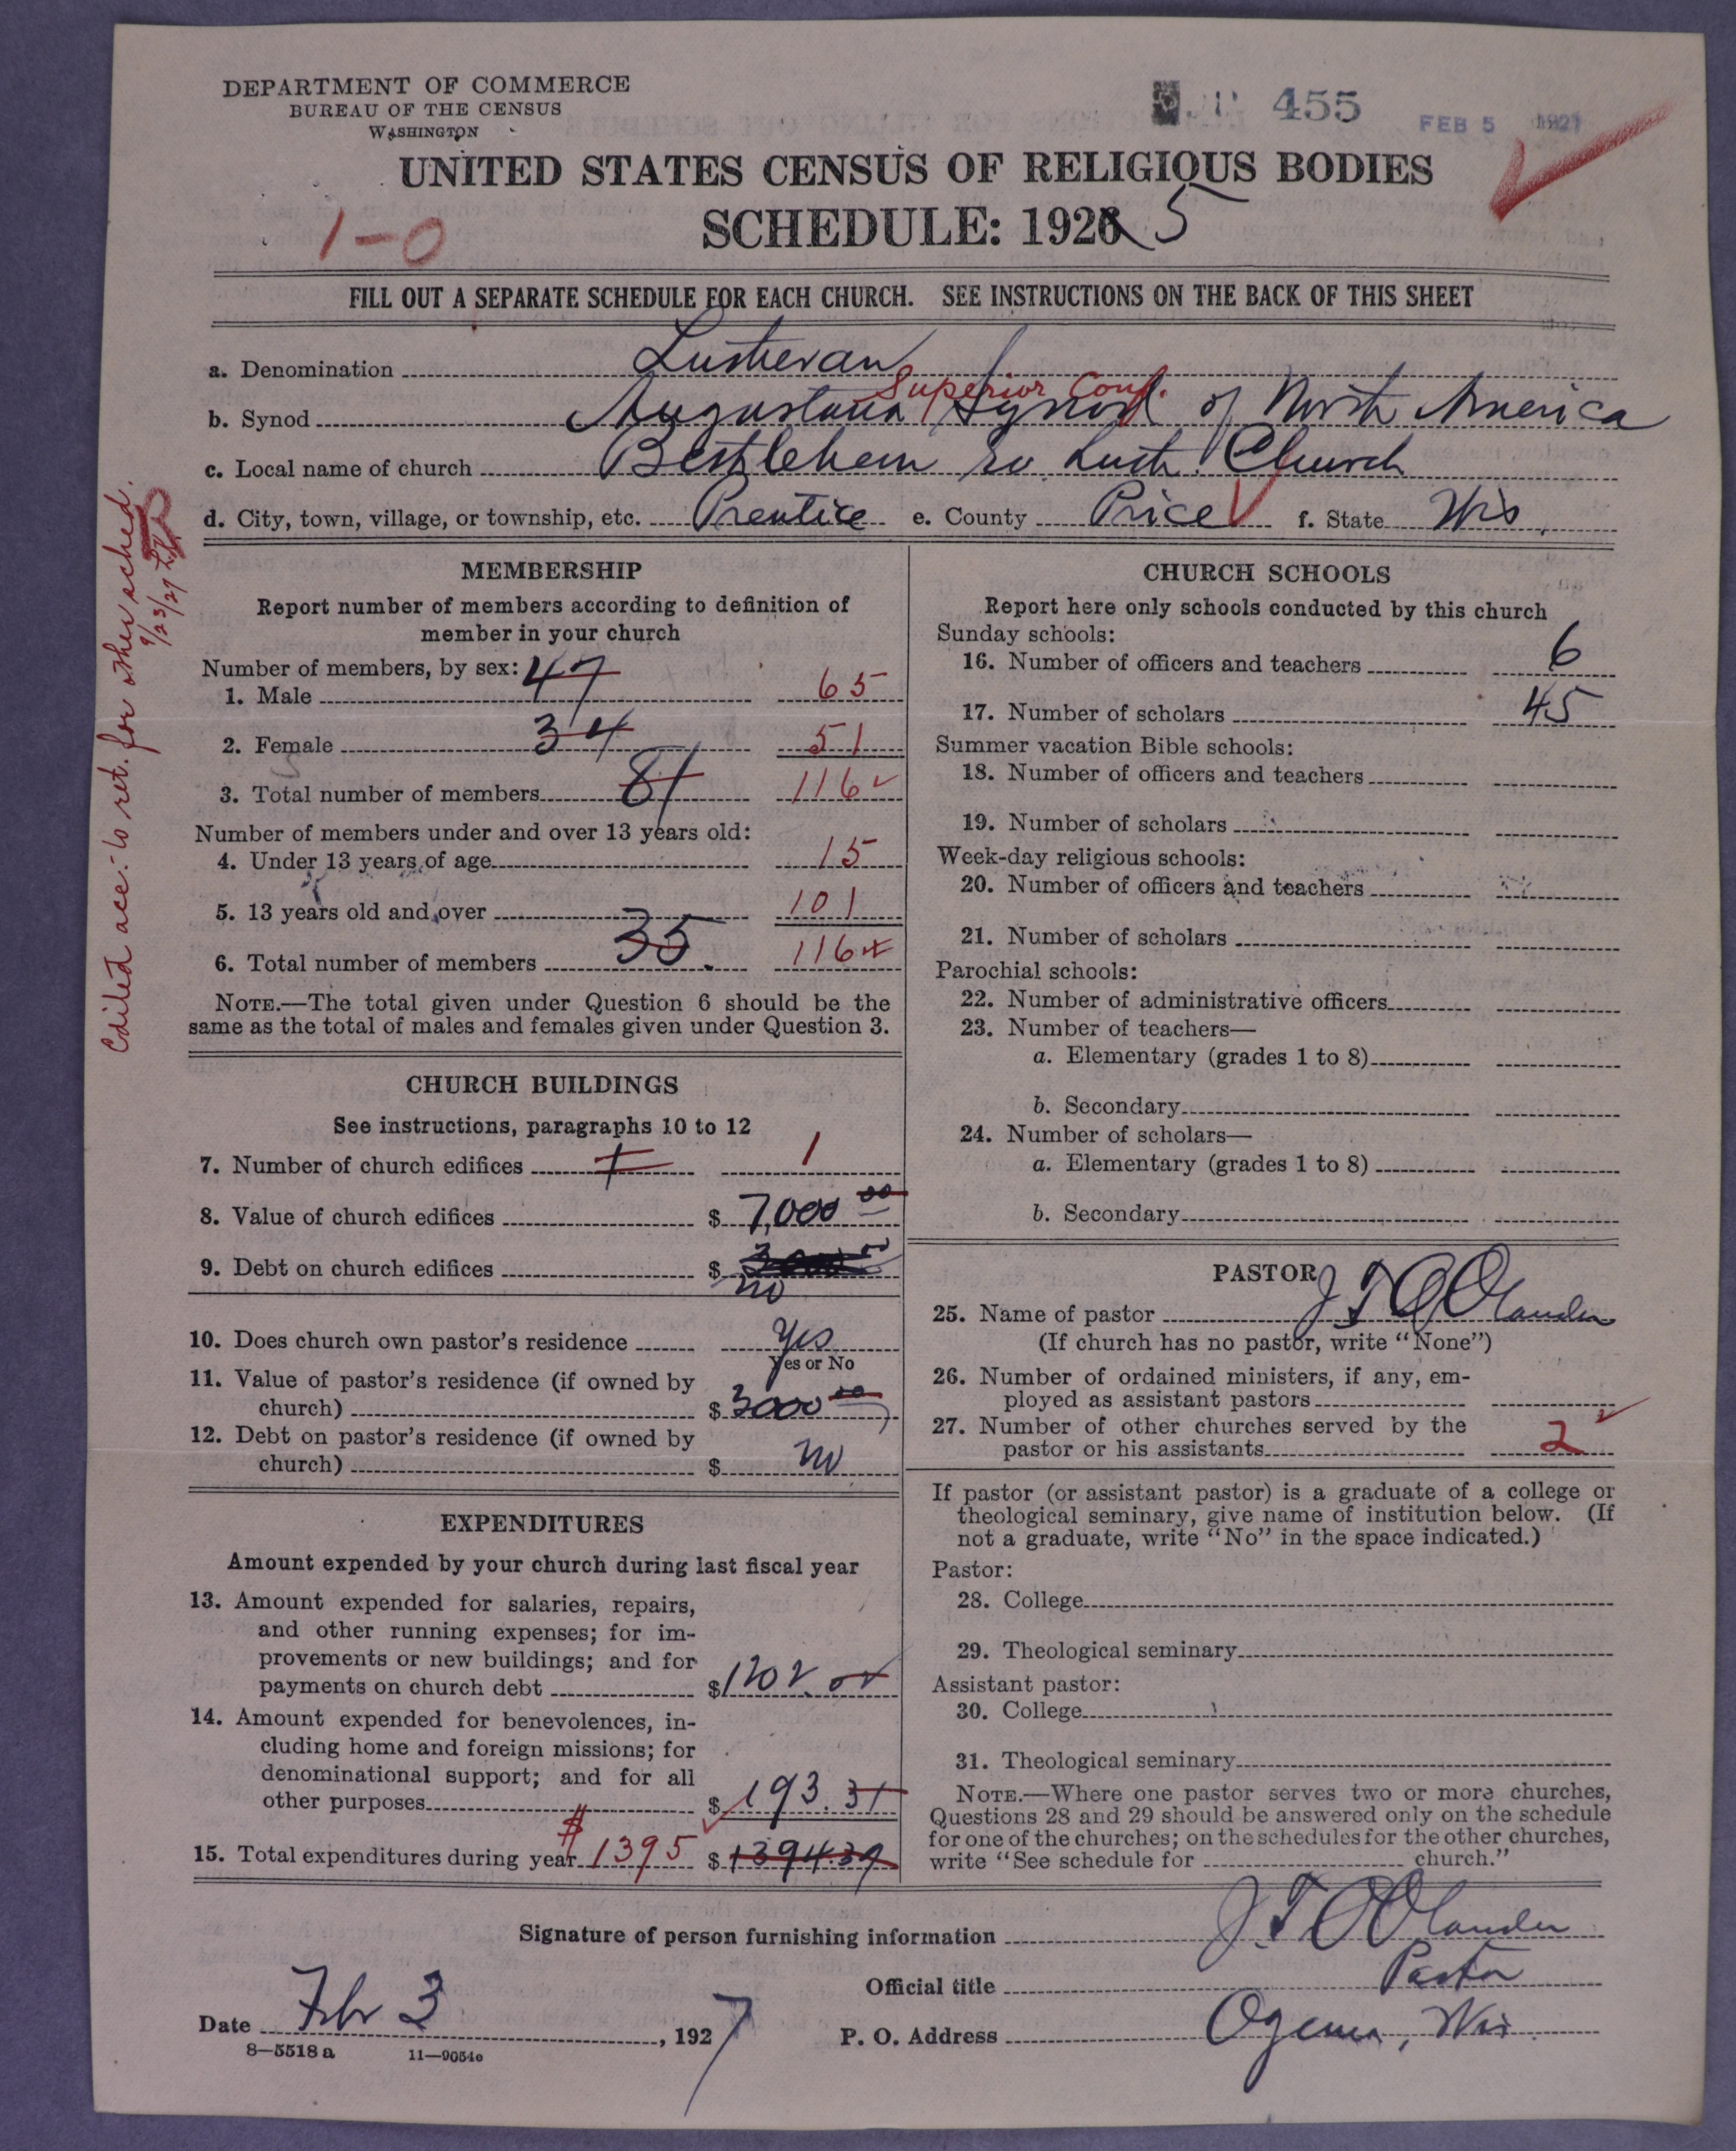 DEPARTMENT OF COMMERCE
BUREAU OF THE CENSUS
WASHINGTON
455
FEB 5 1927
UNITED STATES CENSUS OF RELIGIOUS BODIES
1-0
SCHEDULE: 1926 5
FILL OUT A SEPARATE SCHEDULE FOR EACH CHURCH. SEE INSTRUCTIONS ON THE BACK OF THIS SHEET
a. Denomination Lutheran
Superior Conf.
b. Synod Augustana Synod of North America
c. Local name of church Bethlehem Ev. Luth. Church
d. City, town, village, or township, etc. Prentice e. County Price f. State Wis.
Edited acc. to ret. for other sched.
9/23/27
MEMBERSHIP
Report number of members according to definition of
member in your church
Number of members, by sex: 47
1. Male 65
2. Female 34 51
3. Total number of members 81 116
Number of members under and over 13 years old:
4. Under 13 years of age 15
5. 13 years old and over 101
6. Total number of members 35 116
NOTE.—The total given under Question 6 should be the
same as the total of males and females given under Question 3.
CHURCH BUILDINGS
See instructions, paragraphs 10 to 12
7. Number of church edifices 1 1
8. Value of church edifices $ 7,000 00
9. Debt on church edifices $ no
10. Does church own pastor's residence Yes
Yes or No
11. Value of pastor's residence (if owned by
church) $ 3000 00
12. Debt on pastor's residence (if owned by
church) $ no
EXPENDITURES
Amount expended by your church during last fiscal year
13. Amount expended for salaries, repairs,
and other running expenses; for im-
provements or new buildings; and for
payments on church debt $ 1202.
14. Amount expended for benevolences, in-
cluding home and foreign missions; for
denominational support; and for all
other purposes $ 193.31
15. Total expenditures during year $ 1395 $ 1394.39
CHURCH SCHOOLS
Report here only schools conducted by this church
Sunday schools:
16. Number of officers and teachers 6
17. Number of scholars 45
Summer vacation Bible schools:
18. Number of officers and teachers
19. Number of scholars
Week-day religious schools:
20. Number of officers and teachers
21. Number of scholars
Parochial schools:
22. Number of administrative officers
23. Number of teachers—
a. Elementary (grades 1 to 8)
b. Secondary
24. Number of scholars—
a. Elementary (grades 1 to 8)
b. Secondary
PASTOR
25. Name of pastor J T O Olander
(If church has no pastor, write "None")
26. Number of ordained ministers, if any, em-
ployed as assistant pastors
27. Number of other churches served by the
pastor or his assistants 2
If pastor (or assistant pastor) is a graduate of a college or
theological seminary, give name of institution below. (If
not a graduate, write "No" in the space indicated.)
Pastor:
28. College
29. Theological seminary
Assistant pastor:
30. College
31. Theological seminary
NOTE.—Where one pastor serves two or more churches,
Questions 28 and 29 should be answered only on the schedule
for one of the churches; on the schedules for the other churches,
write "See schedule for church."
Signature of person furnishing information J. T O Olander
Official title Pastor
Date Feb 3, 1927 P. O. Address Ogema, Wis.
8—5518 a 11—9054c